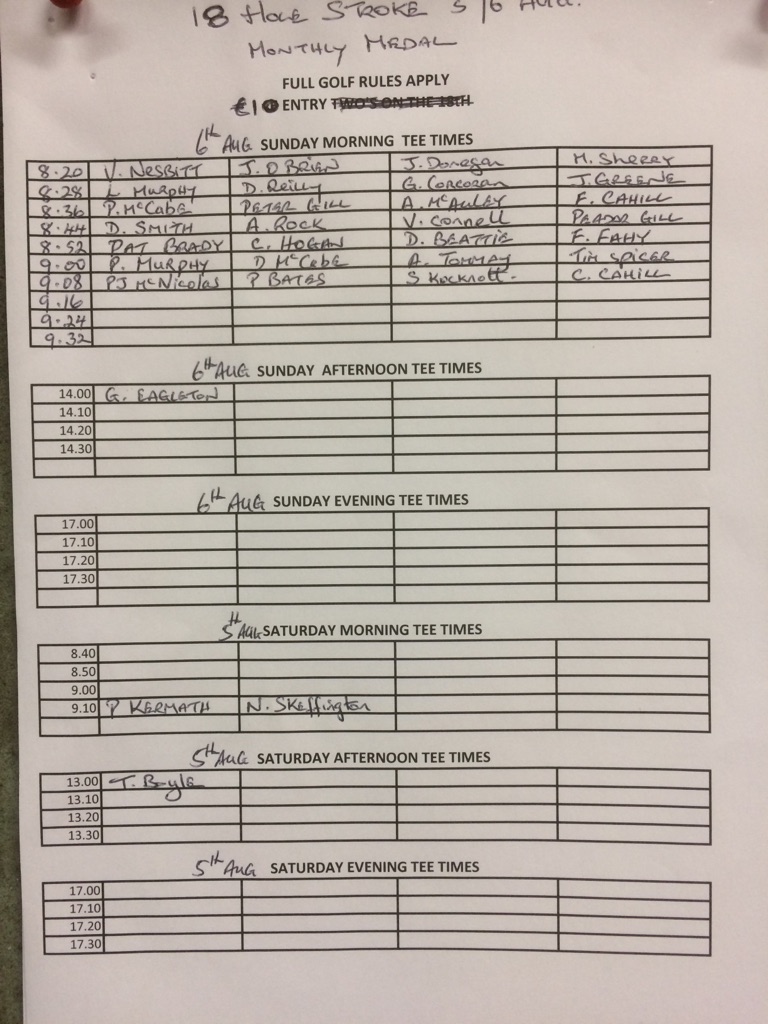 18 HOLE STROKE 5/6 AUG.
MONTHLY MEDAL
FULL GOLF RULES APPLY
€10 ENTRY TWO'S ON THE 18TH
6th AUG SUNDAY MORNING TEE TIMES
8.20 V. NESBITT J. O BRIEN J. Donegan M. Sherry
8.28 L MURPHY D. Reilly G. Corcoran J. GREENE
8.36 P. McCabe PETER GILL A. McAULEY F. CAHILL
8.44 D. SMITH A. ROCK V. Connell PEADAR GILL
8.52 PAT BRADY C. HOGAN D. BEATTIE F. FAHY
9.00 P. MURPHY D McCabe A. TIM SPICER
9.08 PJ McNicolas P BATES S C. CAHILL
9.16
9.24
9.32
6th AUG SUNDAY AFTERNOON TEE TIMES
14.00 G. EAGLETON
14.10
14.20
14.30
6th AUG SUNDAY EVENING TEE TIMES
17.00
17.10
17.20
17.30
5th AUG SATURDAY MORNING TEE TIMES
8.40
8.50
9.00
9.10 P KERMATH N. SKeffington
5th AUG SATURDAY AFTERNOON TEE TIMES
13.00 T. Boyle
13.10
13.20
13.30
5th AUG SATURDAY EVENING TEE TIMES
17.00
17.10
17.20
17.30